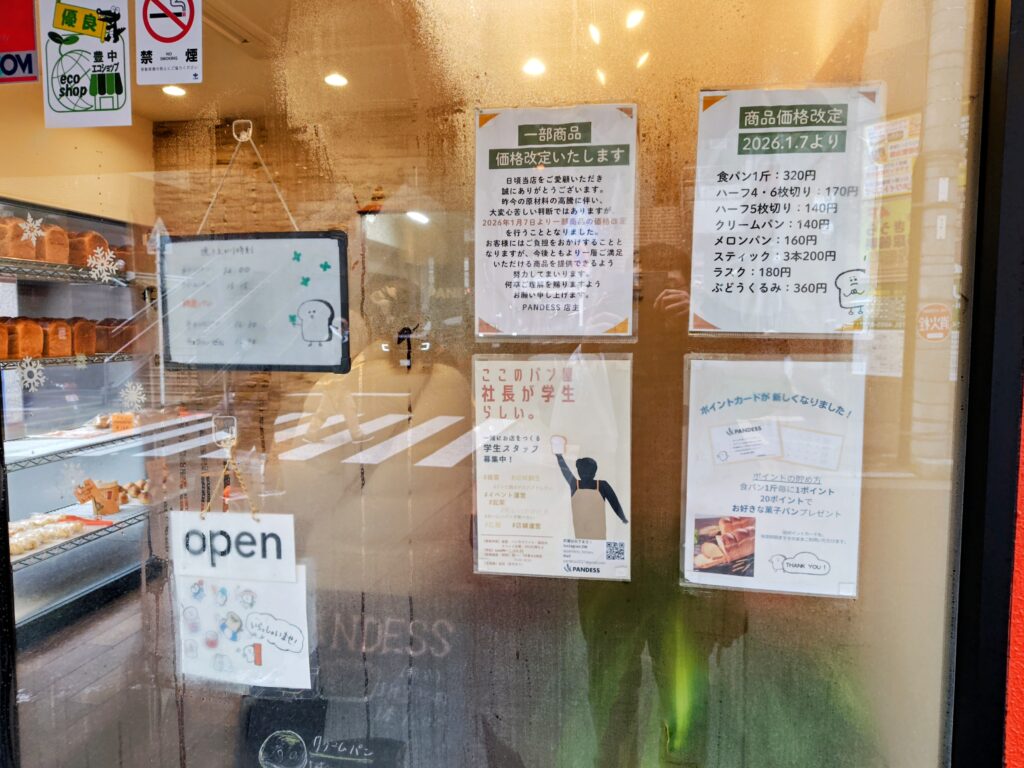 優良
豊中
エコショップ
eco
shop
禁煙
NO
SMOKING
一部商品
価格改定いたします
日頃当店をご愛顧いただき
誠にありがとうございます。
昨今の原材料の高騰に伴い、
大変心苦しい判断ではありますが、
2026年1月7日より一部商品の価格改定
を行うこととなりました。
お客様にはご負担をおかけすることと
なりますが、今後ともより一層ご満足
いただける商品を提供できるよう
努力してまいります。
何卒ご理解を賜りますよう
お願い申し上げます。
PANDESS 店主
商品価格改定
2026.1.7より
食パン1斤：320円
ハーフ4・6枚切り：170円
ハーフ5枚切り：140円
クリームパン：140円
メロンパン：160円
スティック：3本200円
ラスク：180円
ぶどうくるみ：360円
消火栓
ここのパン屋
社長が学生
らしい。
一緒にお店をつくる
学生スタッフ
募集中！
#イベント運営
#店舗運営
PANDESS
ポイントカードが新しくなりました！
PANDESS
ポイントの貯め方
食パン1斤毎に1ポイント
20ポイントで
お好きな菓子パンプレゼント
THANK YOU!
open
いらっしゃいませ!
PANDESS
クリームパン